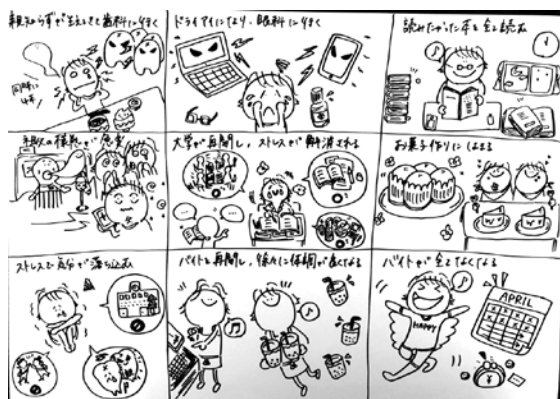 親知らずが生えてきて歯科に行く
同時に
4本
ドライアイになり、眼科に行く
読みたかった本を全て読む
大学が再開し、ストレスが解消される
お菓子作りにはまる
ストレスで気分が落ち込む
バイトを再開し、徐々に体調が良くなる
バイトが全てなくなる
HAPPY
APRIL